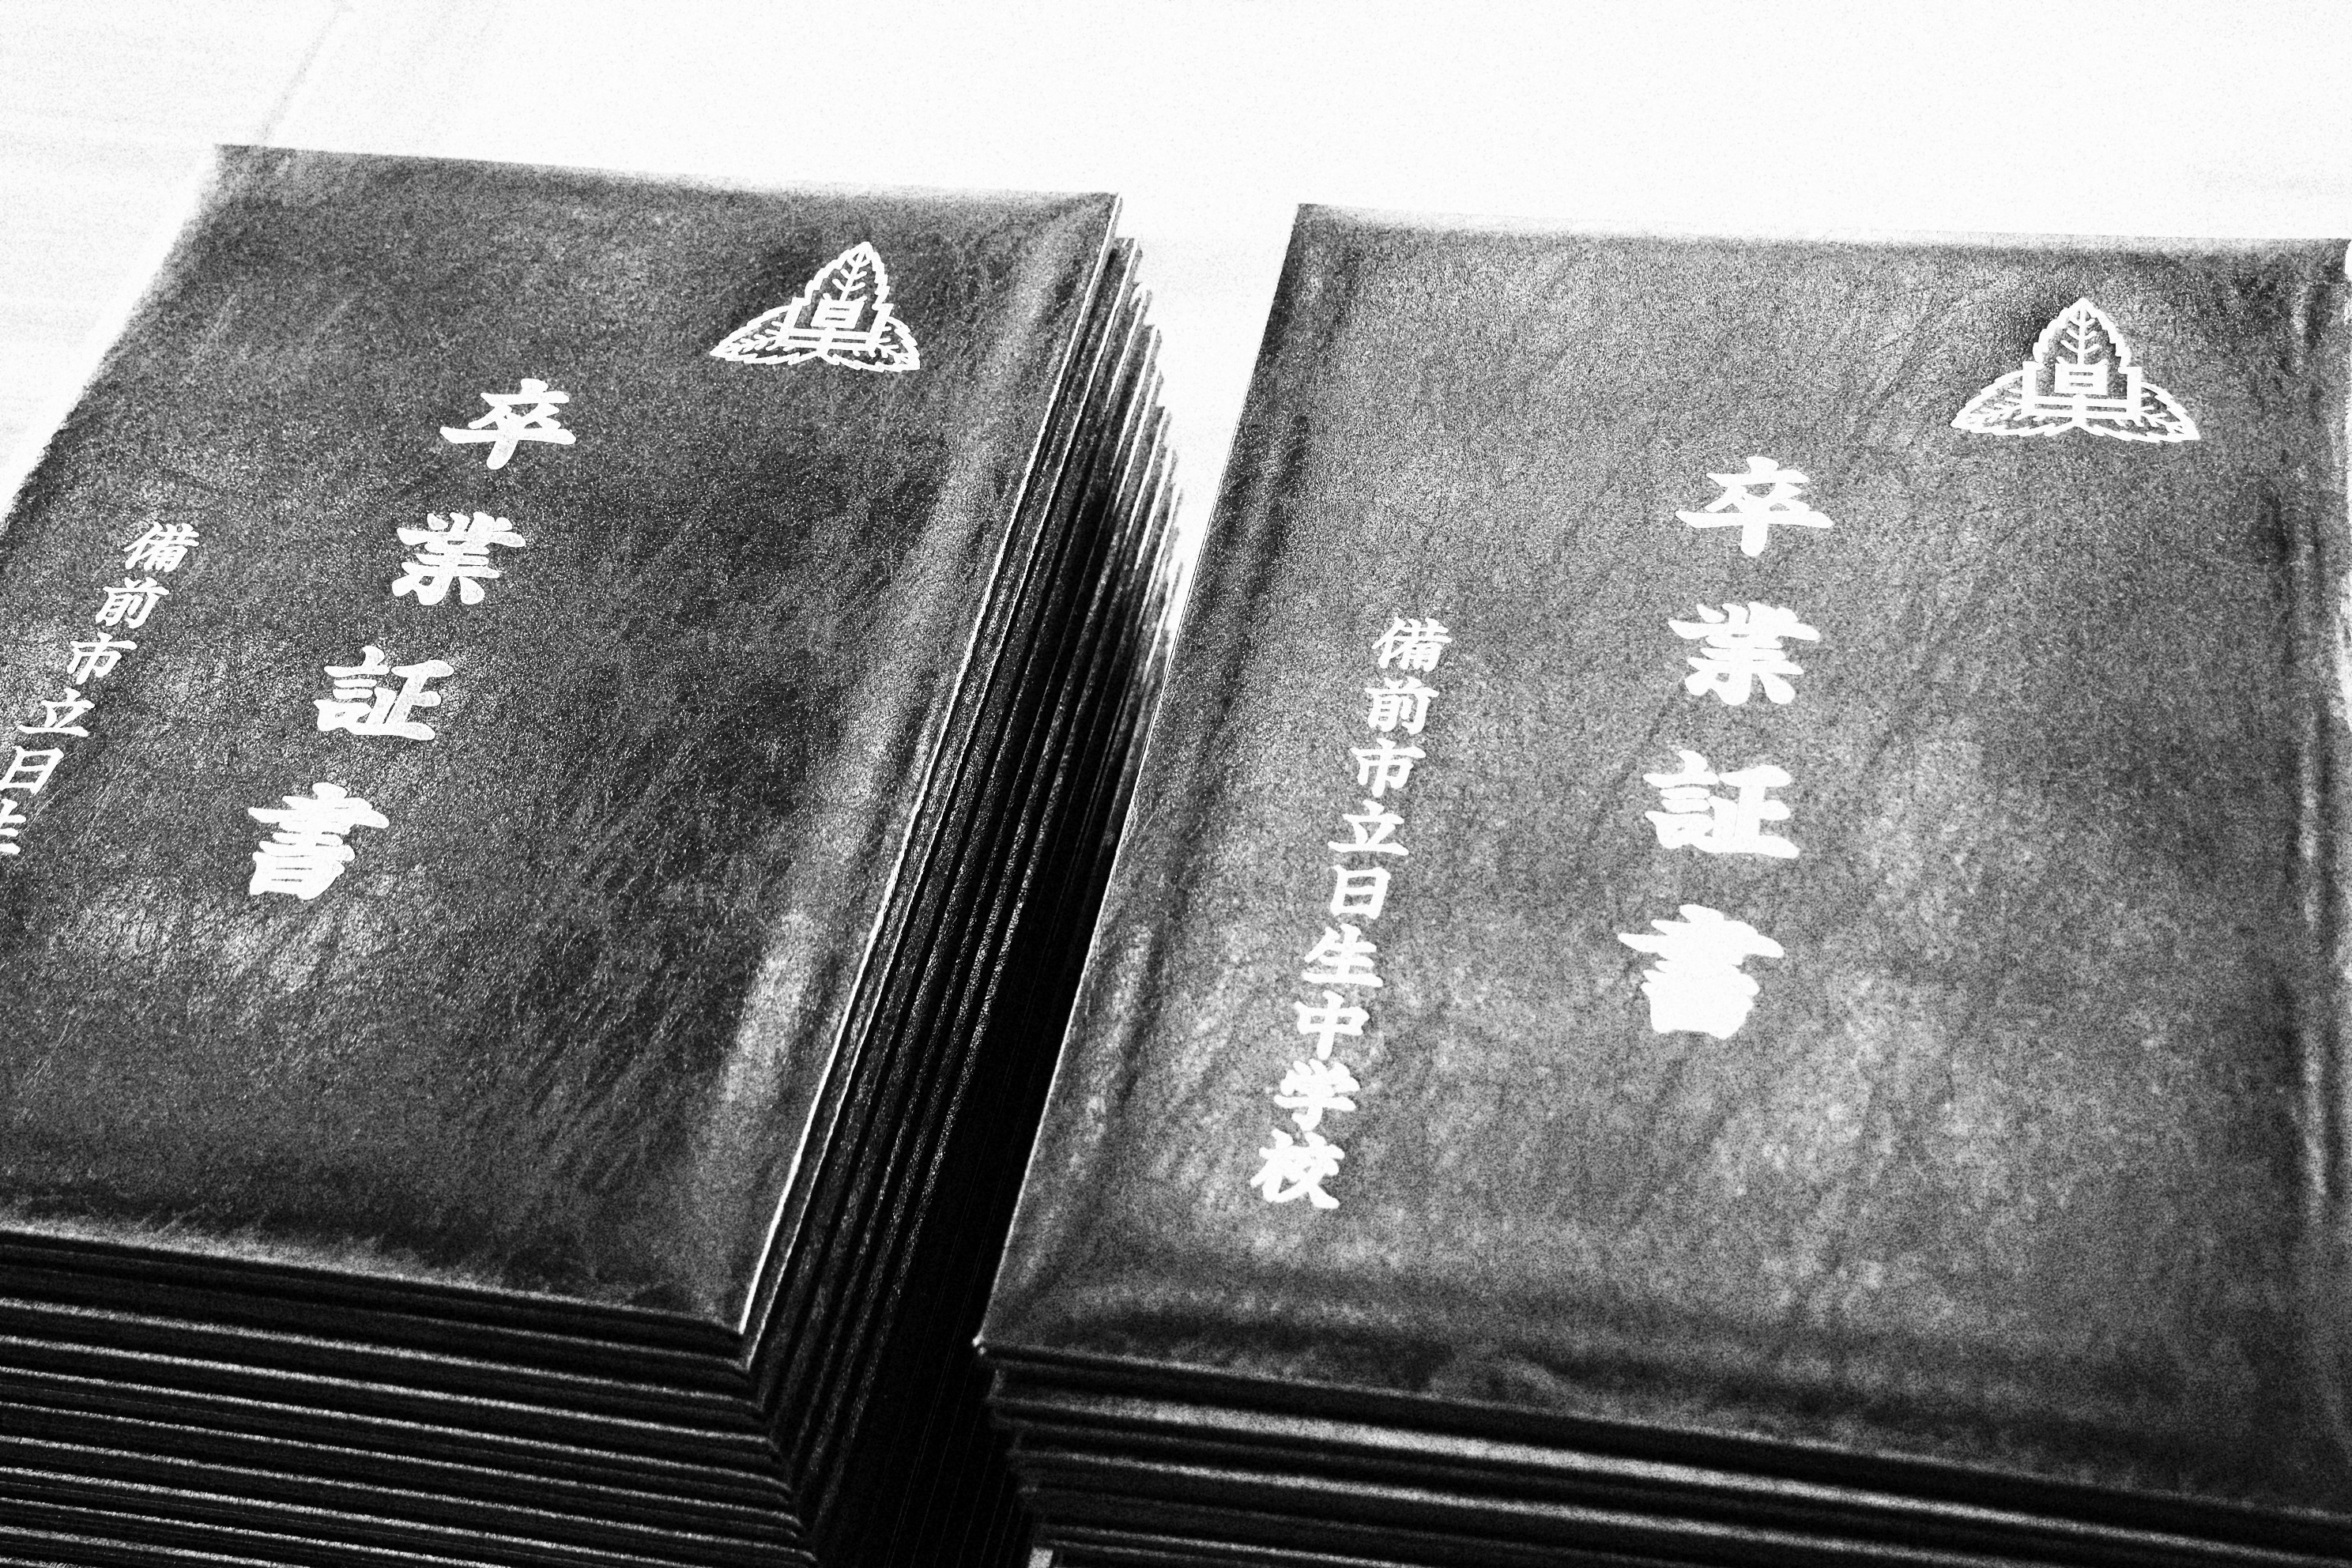 卒業証書
備前市立日生中学校
卒業証書
備前市立日